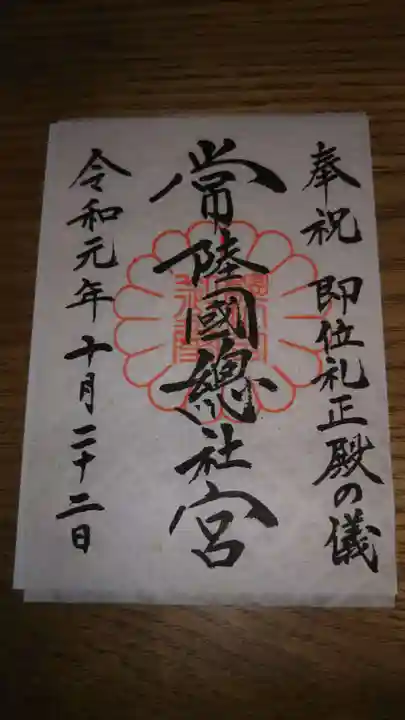 奉祝 即位礼正殿の儀
常陸國總社宮
令和元年 十月二十二日